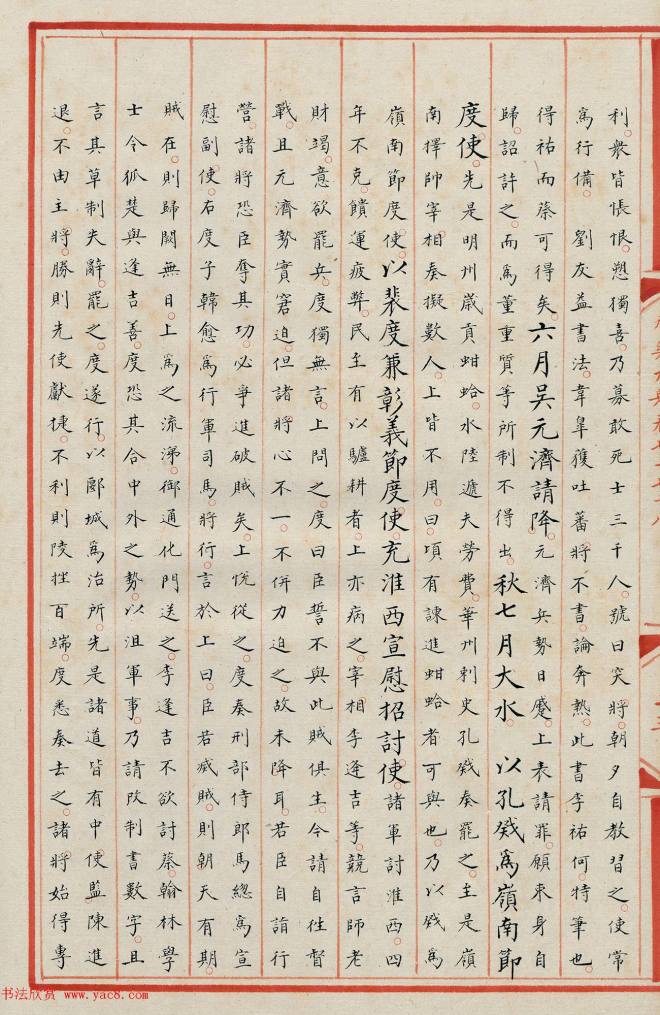 利。衆皆悵恨。愬獨喜。乃募敢死士三千人。號曰突將。朝夕自教習之。使常
爲行備。劉友益書法。韋皐獲吐蕃將不書。論奔熱。此書李祐何。特筆也。
得祐而蔡可得矣。六月吳元濟請降。元濟兵勢日蹙。上表請罪。願束身自
歸。詔許之。而爲董重質等所制不得出。秋七月大水。以孔戣爲嶺南節
度使。先是明州歲貢蚶蛤。水陸遞夫勞費。華州刺史孔戣奏罷之。至是嶺
南擇帥宰相奏擬數人。上皆不用。曰。頃有諫進蚶蛤者可與也。乃以戣爲
嶺南節度使。以裴度兼彰義節度使。充淮西宣慰招討使。諸軍討淮西。四
年不克。饋運疲弊。民至有以驢耕者。上亦病之。宰相李逢吉等。競言師老
財竭。意欲罷兵。度獨無言。上問之。度曰臣誓不與此賊俱生。今請自往督
戰。且元濟勢實窘迫。但諸將心不一。不併力迫之。故未降耳。若臣自詣行
營。諸將恐臣奪其功。必爭進破賊矣。上悅從之。度奏刑部侍郎馬總爲宣
慰副使。右庶子韓愈爲行軍司馬。將行。言於上曰。臣若滅賊。則朝天有期
賊在。則歸闕無日。上爲之流涕。御通化門送之。李逢吉不欲討蔡。翰林學
士令狐楚與逢吉善。度恐其合中外之勢。以沮軍事。乃請改制書數字。且
言其草制失辭。罷之。度遂行。以郾城爲治所。先是諸道皆有中使監陳進
退。不由主將。勝則先使獻捷。不利則陵挫百端。度悉奏去之。諸將始得專
书法欣赏 www.yac8.com